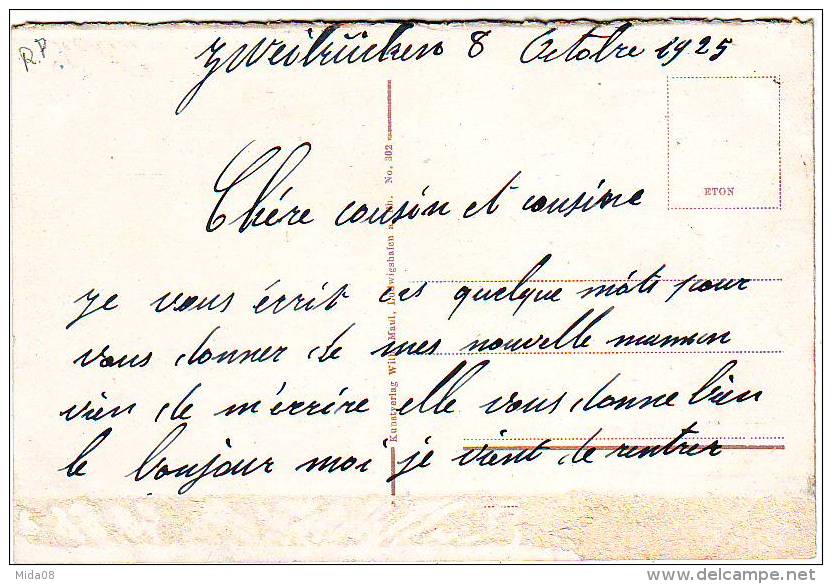 R.P
Zweibrücken 8 Octobre 1925
ETON
Chére cousin et cousine
je vous écrit ces quelque môts pour
vous donner de mes nouvelle maman
vien de m'écrire elle vous donne bien
le bonjour moi je vient de rentrer
Kunstverlag Willy Maul, Ludwigshafen a. Rh. No. 302
Mida08